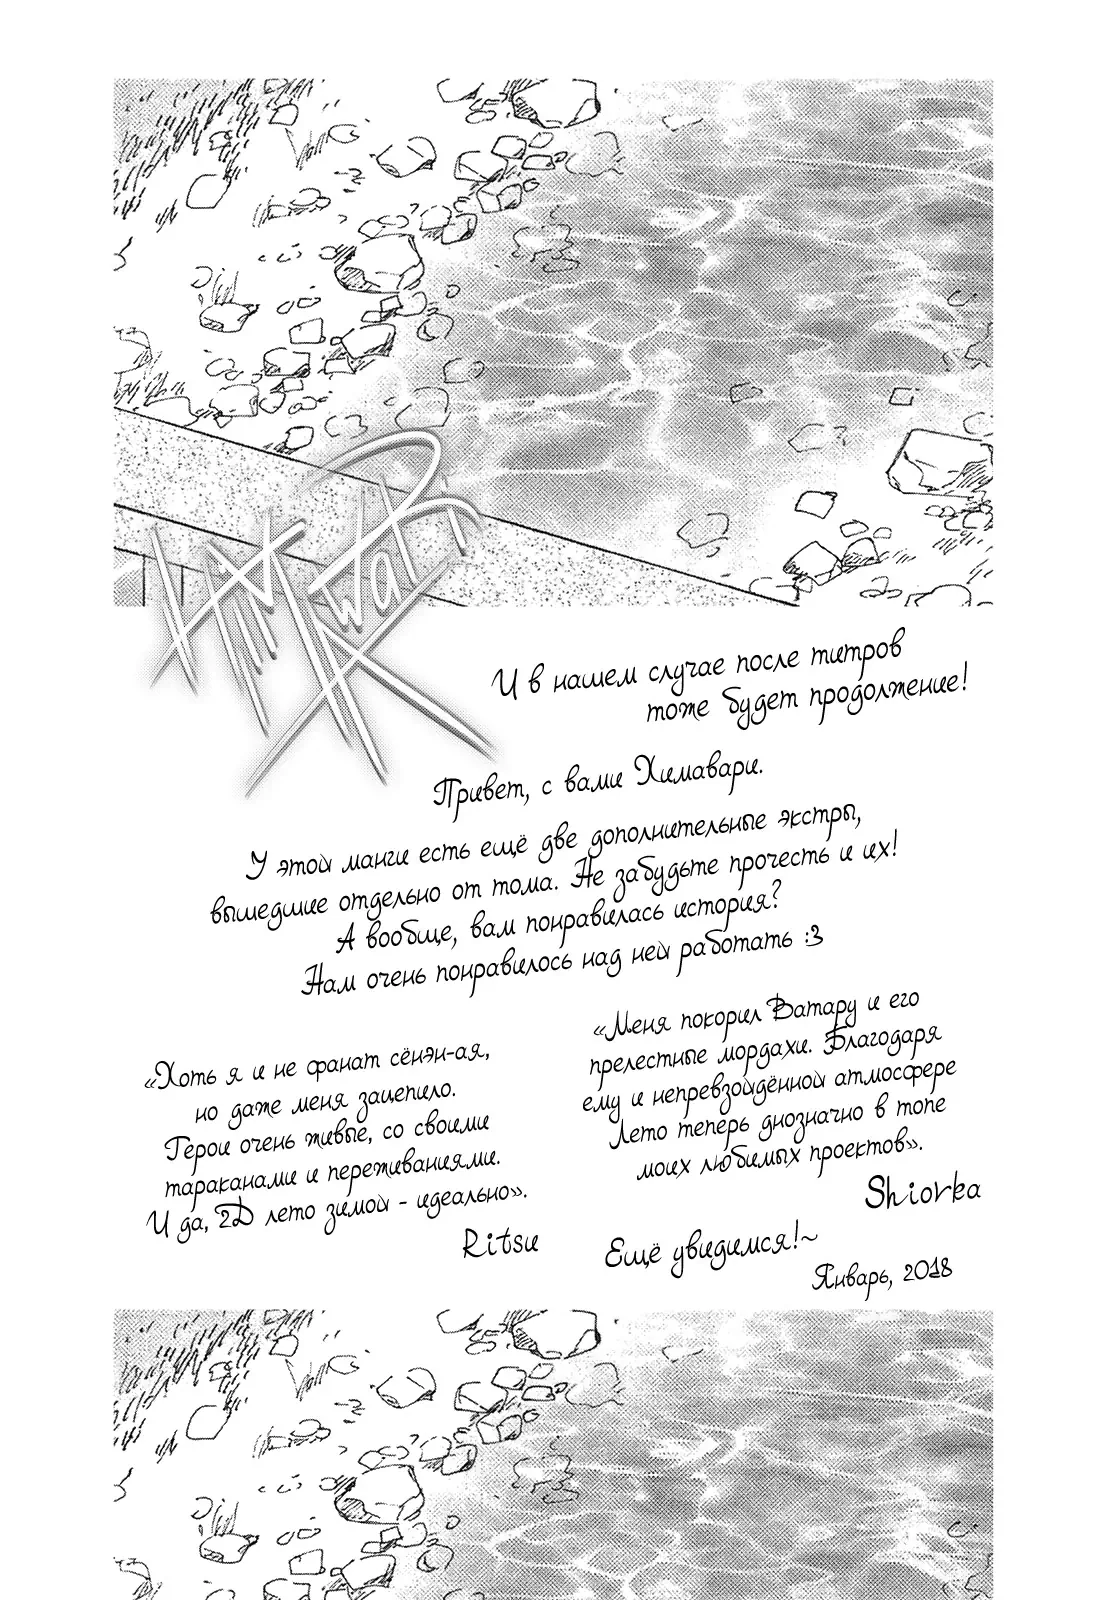 HIMAWARI
И в нашем случае после титров
тоже будет продолжение!
Привет, с вами Химавари.
У этой манги есть ещё две дополнительные экстры,
вышедшие отдельно от тома. Не забудьте прочесть и их!
А вообще, вам понравилась история?
Нам очень понравилось над ней работать :3
«Хоть я и не фанат сёнэн-ая,
но даже меня зацепило.
Герои очень живые, со своими
тараканами и переживаниями.
И да, 2D лето зимой - идеально».
Ritsu
«Меня покорил Ватару и его
прелестные мордахи. Благодаря
ему и непревзойдённой атмосфере
Лето теперь днозначно в топе
моих любимых проектов».
Shiorka
Ещё увидимся!~
Январь, 2018